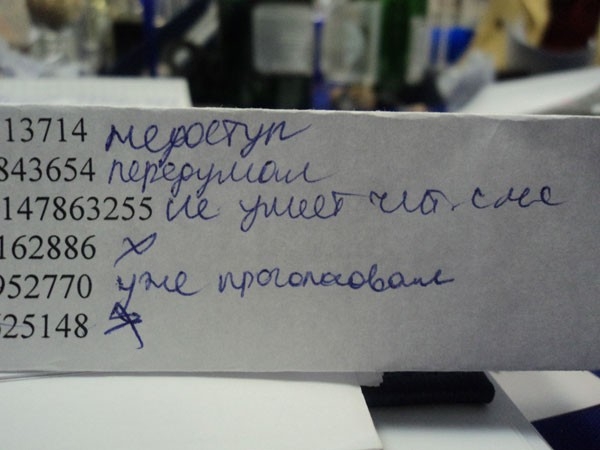 13714 недоступ
843654 передумал
147863255 не умеет чит. смс
162886 х
952770 уже проголосовал
25148